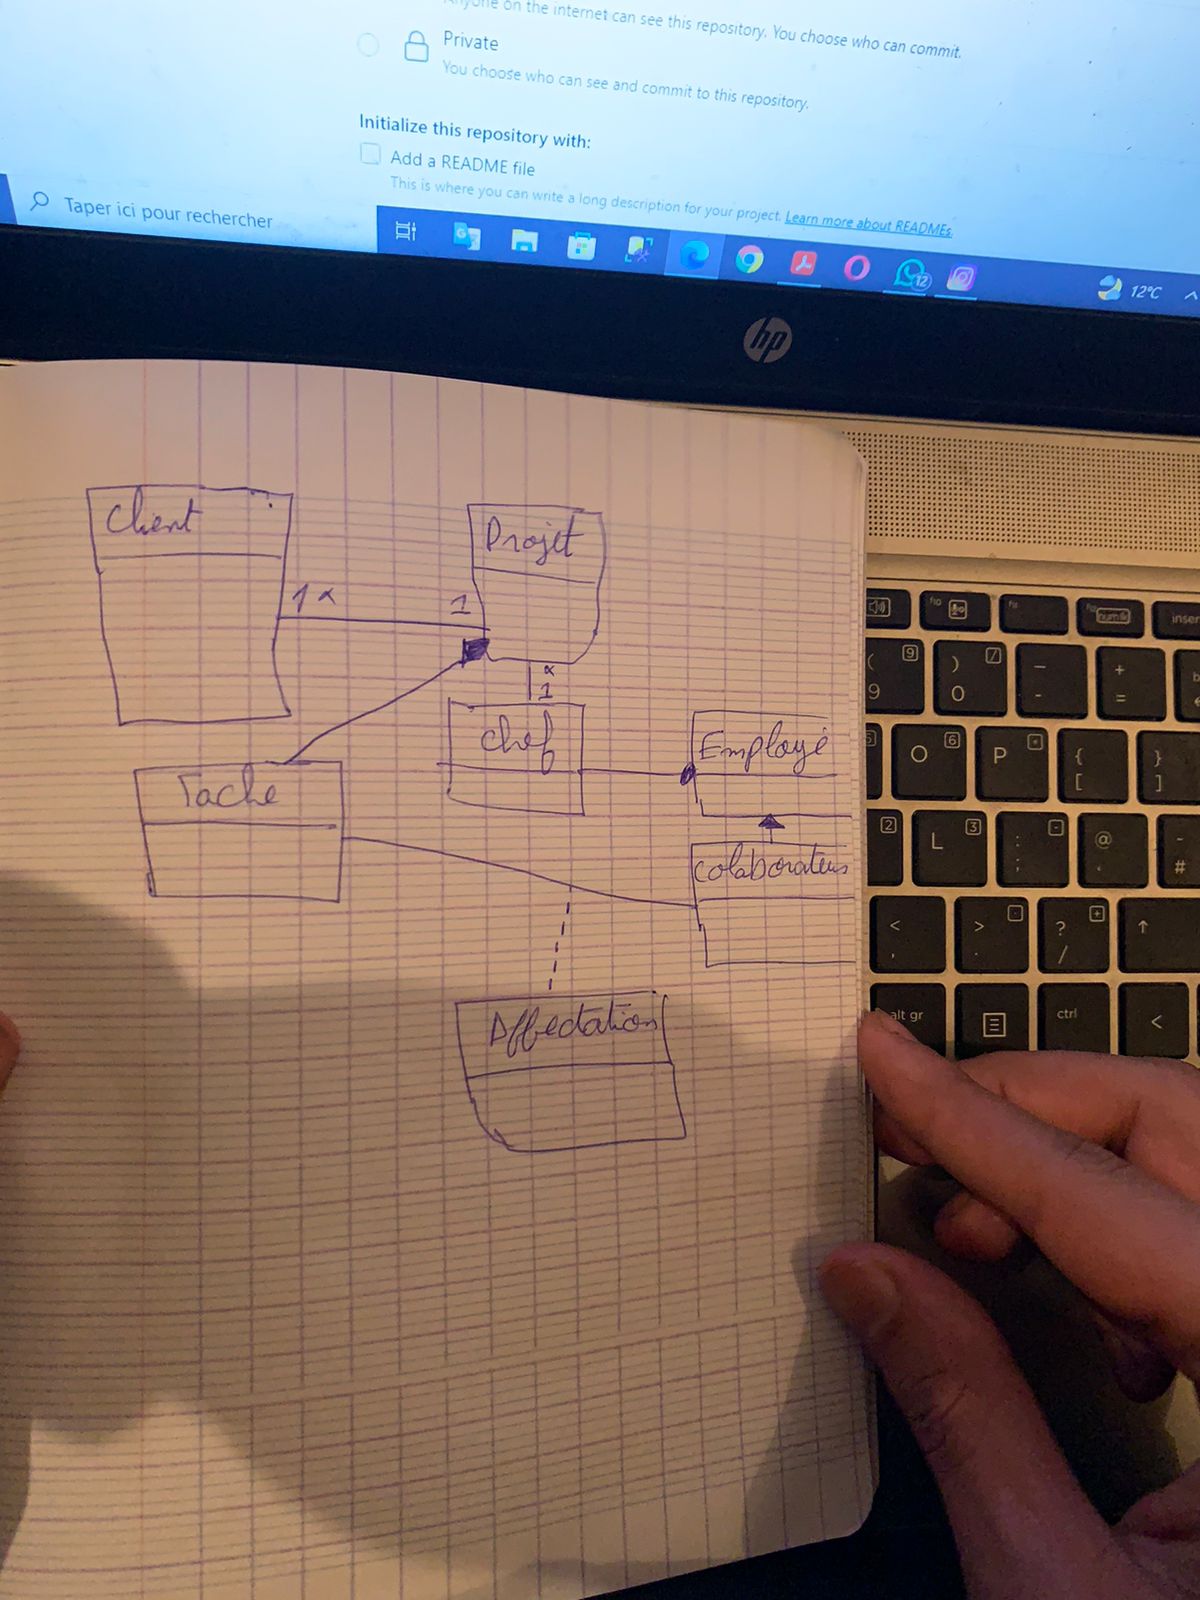 Anyone on the internet can see this repository. You choose who can commit.
Private
You choose who can see and commit to this repository.
Initialize this repository with:
Add a README file
This is where you can write a long description for your project. Learn more about READMEs.
Taper ici pour rechercher
12
12°C
hp
Client
Projet
1 *
1
*
1
Chef
Employé
Tache
Colaborateurs
Affectation
f10
f11
f12
num lk
inser
( 9
9
) 7
0
_
-
+
=
O 6
P *
{
[
}
]
2
L 3
: -
;
@
~
#
<
,
> .
.
? +
/
↑
alt gr
ctrl
<